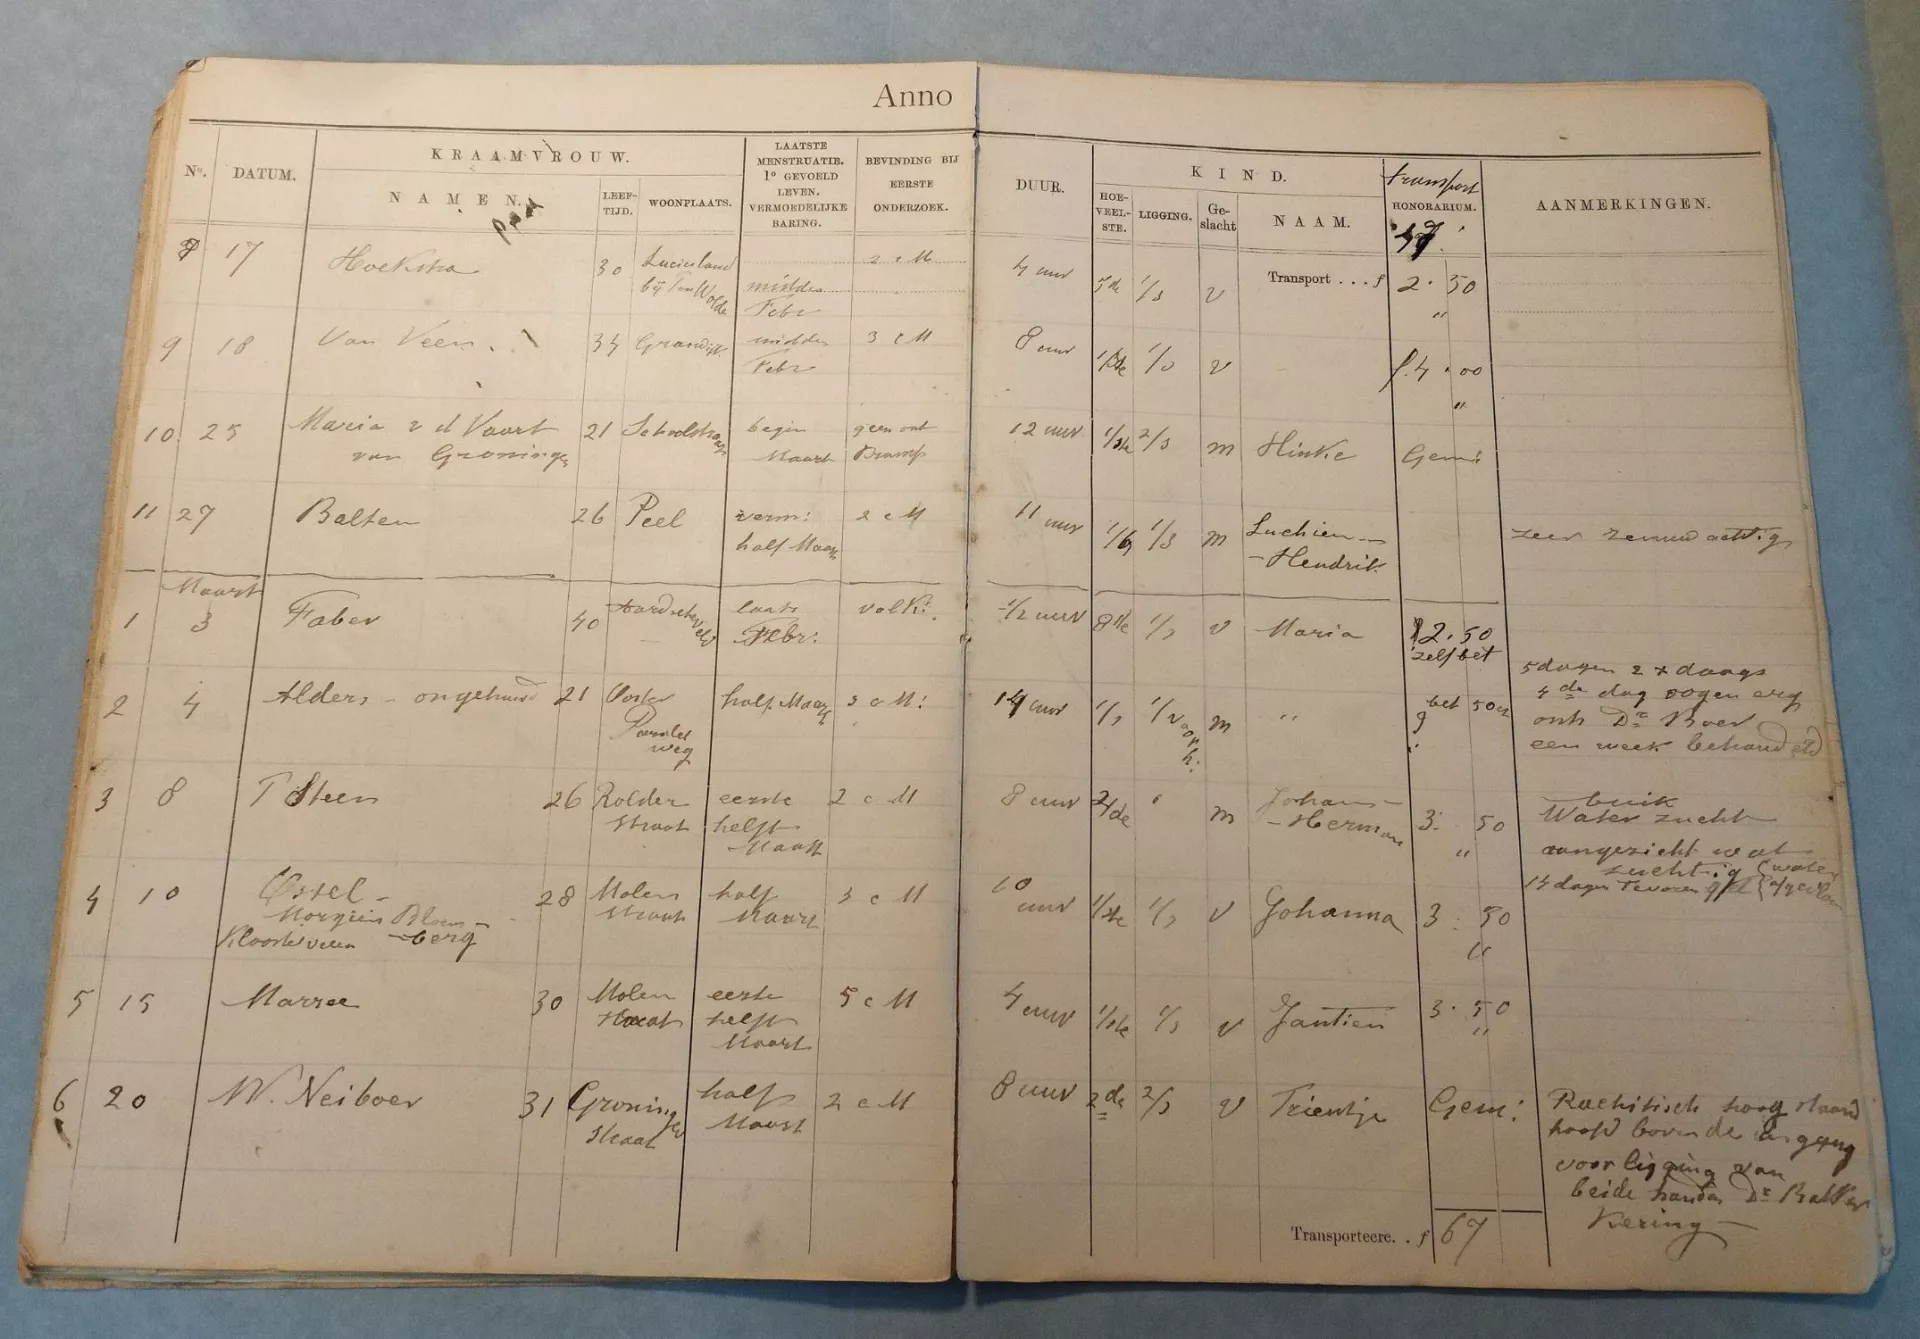 Anno
Nº. DATUM. KRAAMVROUW. LAATSTE MENSTRUATIE. 1º GEVOELD LEVEN. VERMOEDELIJKE BARING. BEVINDING BIJ EERSTE ONDERZOEK. DUUR. KIND. transport HONORARIUM. AANMERKINGEN.
NAMEN. LEEF-TIJD. WOONPLAATS. HOE-VEEL-STE. LIGGING. Ge-slacht NAAM.
Transport . . . f
17 Hoekstra 30 2 c M 4 uur 1/3 v 2. 50
bij midden
Febr "
9 18 Van Veen. 34 midden 3 c M 8 uur 1/3 v f. 4. 00
Febr "
10 25 Maria v d Vaart 21 Schoolstraat begin geen ont 12 uur 1/ste 2/3 m Hinke Gem:
van Groningen Maart
11 27 Balten 26 Peel verm: 2 c M 11 uur 1/3 m Luchien-
half Maart -Hendrik zeer zenuwachtig
Maart
1 3 Faber 40 laats volk: 1/2 uur 8ste 1/3 v Maria 2. 50
Febr. zelf bet
5 dagen 2 x daags
2 4 Alders - ongehuwd 21 Ooster half Maart 3 c M: 14 uur m " bet 50 ct 4de dag oogen erg
Parallel ont Dr Boer
weg een week behandeld
3 8 T Steen 26 Rolder eerste 2 c M 8 uur 2/de m Johans- 3. 50 buik
straat helft -Herman Water zucht
Maart " aangezicht wat
zuchtig
14 dagen Tevoren
4 10 Ossel - 28 Molen half 3 c M 10 uur 1/ste 1/3 v Johanna 3. 50
Bloem- straat Maart "
Kloosterveen -berg
5 15 Marree 30 Molen eerste 5 c M 4 uur 1/ste 1/3 v Jantien 3. 50
straat helft "
Maart
6 20 W. Neiboer 31 Groninger half 2 c M 8 uur 2de 2/3 v Trientje Gem: Rachitisch hoog staand
straat Maart hoofd boven de ingang
voorligging van
beide handen Dr Bakker
Kering -
Transporteere. . f 67